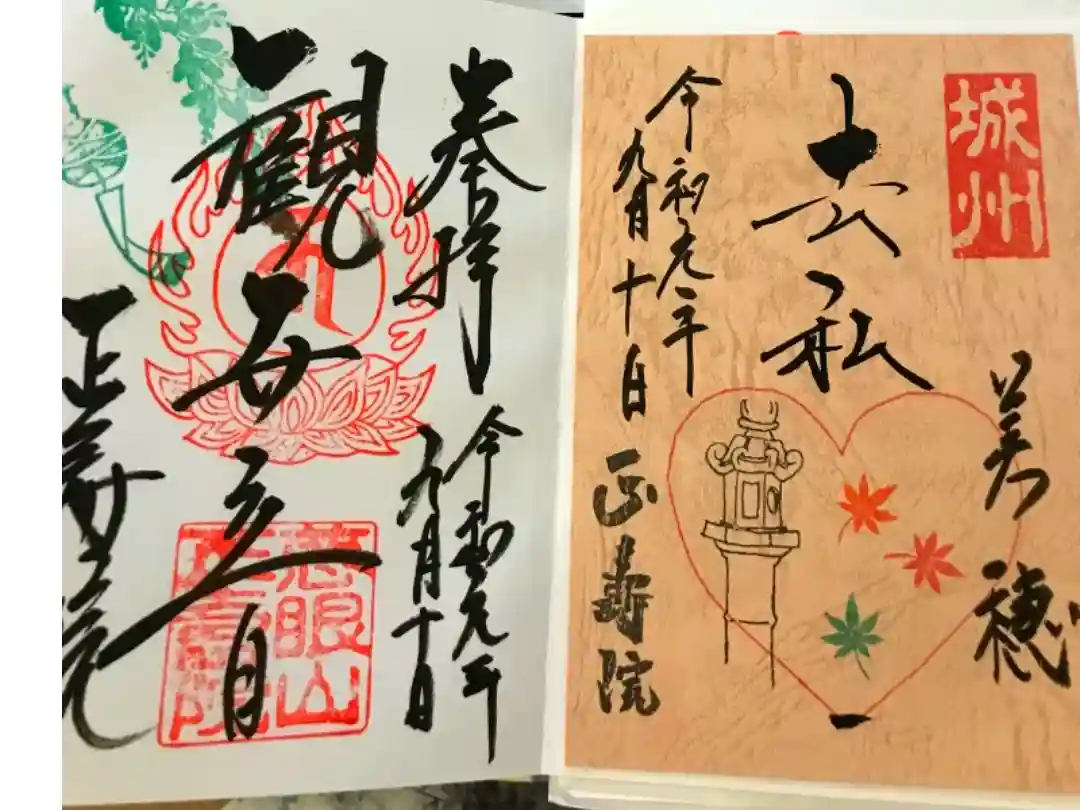 城州
美穂
去私
令和元年
九月十日 正壽院
奉拝
令和元年
九月十日
観世音
慈眼山
正壽院
正寿院